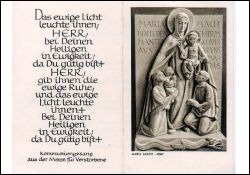 Das ewige Licht
leuchte ihnen,
HERR,
bei Deinen
Heiligen
in Ewigkeit,
da Du gütig bist+
HERR,
gib ihnen die
ewige Ruhe,
und das ewige
Licht leuchte
ihnen+
bei Deinen
Heiligen
in Ewigkeit,
da Du gütig bist+
Kommuniongesang
aus der Messe für Verstorbene
MARIA
MACH
BREIT DEN
MANTEL
AUS